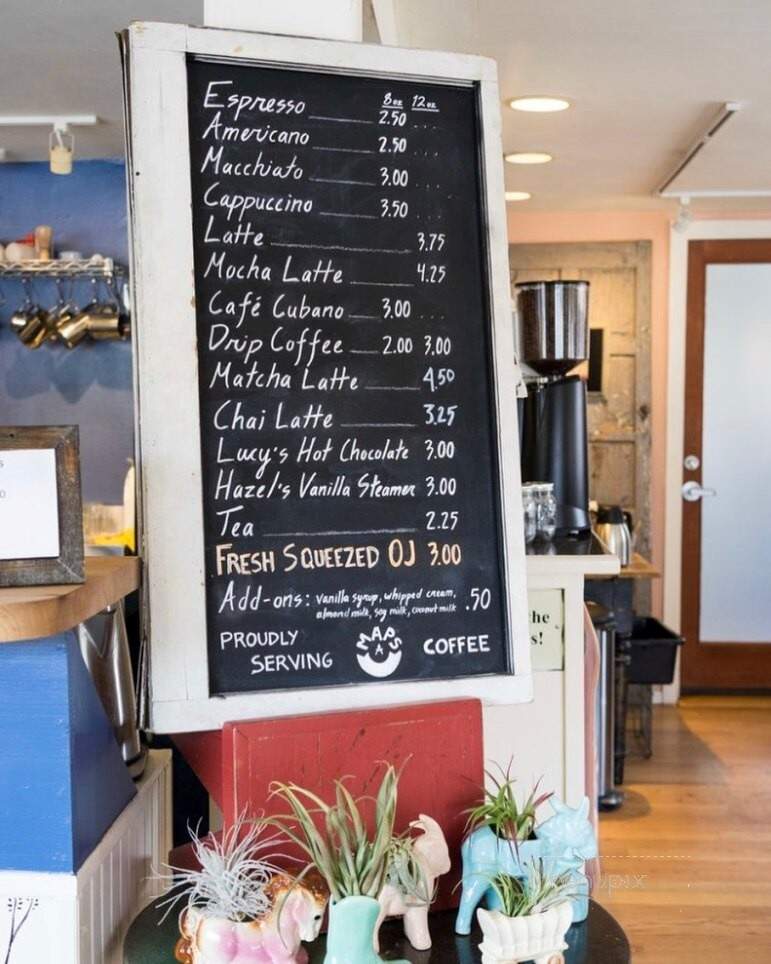 8oz 12oz
Espresso 2.50 ...
Americano 2.50 ...
Macchiato 3.00 ...
Cappuccino 3.50 ...
Latte 3.75
Mocha Latte 4.25
Café Cubano 3.00 ...
Drip Coffee 2.00 3.00
Matcha Latte 4.50
Chai Latte 3.25
Lucy's Hot Chocolate 3.00
Hazel's Vanilla Steamer 3.00
Tea 2.25
FRESH SQUEEZED OJ 3.00
Add-ons: vanilla syrup, whipped cream, .50
almond milk, soy milk, coconut milk
PROUDLY
SERVING
MAPS
COFFEE
the
s!